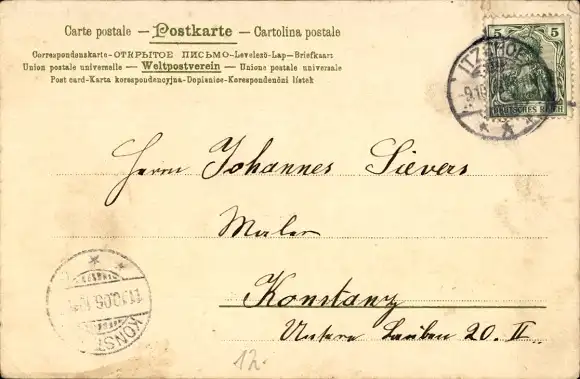 Carte postale — Postkarte — Cartolina postale
Correspondenzkarte-ОТКРЫТОЕ ПИСЬМО-Levelező-Lap-Briefkaart
Union postale universelle — Weltpostverein — Unione postale universale
Post card-Karta korespondencyjna-Dopisnice-Korespondenčni lístek
5 5
DEUTSCHES REICH
ITZEHOE
Herrn Johannes Sievers
Maler
Konstanz
Untere Lauben 20. II
11.10.06
KONST
12.